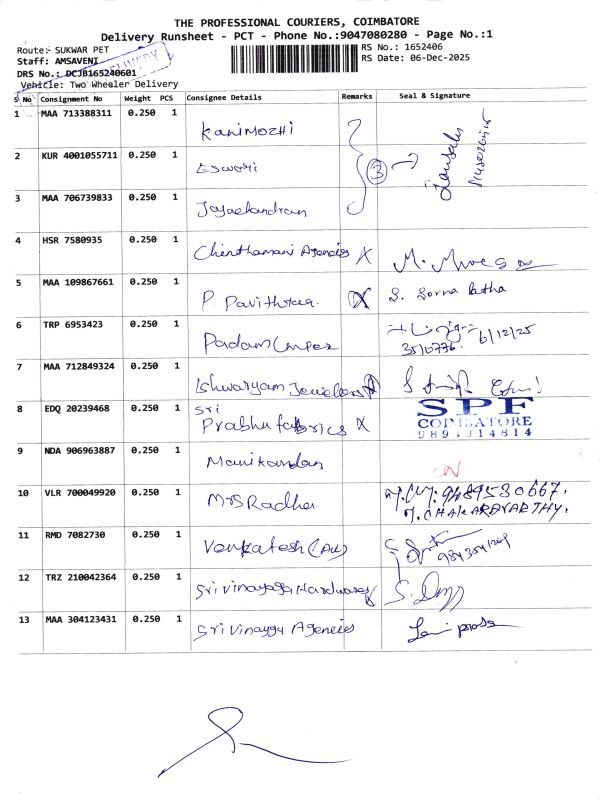 THE PROFESSIONAL COURIERS, COIMBATORE
Delivery Runsheet - PCT - Phone No.:9047080280 - Page No.:1
Route: SUKWAR PET
RS No.: 1652406
Staff: AMSAVENI
RS Date: 06-Dec-2025
DRS No.: DCJB165240601
DELIVERY
Vehicle: Two Wheeler Delivery
S No Consignment No Weight PCS Consignee Details Remarks Seal & Signature
1 MAA 713388311 0.250 1 Kanimozhi
2 KUR 4001055711 0.250 1 Eswari 3
3 MAA 706739833 0.250 1 Jayachandran
4 HSR 7580935 0.250 1 Chinthamani Agencies X
5 MAA 109867661 0.250 1 P Pavithraa X S. Sorna Latha
6 TRP 6953423 0.250 1 Padam 6/12/25
7 MAA 712849324 0.250 1 Ishwaryam Jewellers
8 EDQ 20239468 0.250 1 Sri Prabhu fabrics X
SPF
COIMBATORE
9 NDA 906963887 0.250 1 Manikandan
10 VLR 700049920 0.250 1 Mrs Radha 9489530667.
M. CHAKARAVARTHY.
11 RMD 7082730 0.250 1 Venkatesh
12 TRZ 210042364 0.250 1 Sri Vinayaga Hardwares
13 MAA 304123431 0.250 1 Sri Vinayga Agencies